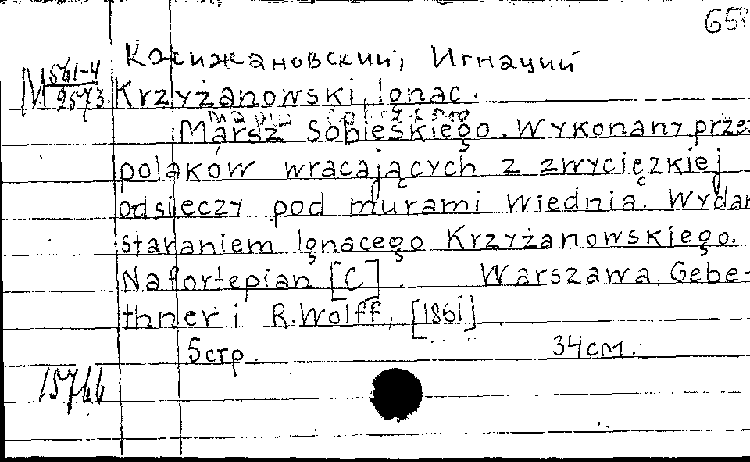 65
Косижановский, Игнаций
М 561-4
9573 Krzyżanowski, Ignac.
Marsz Sobieskiego. Wykonany prze
polaków wracających z zwyciężkiej
odsieczy pod murami Wiednia. Wydan
staraniem Ignacego Krzyżanowskiego.
Na fortepian [C]. Warszawa, Gebe-
thner i R. Wolff, [1861]
5 стр. 34 см.
15766